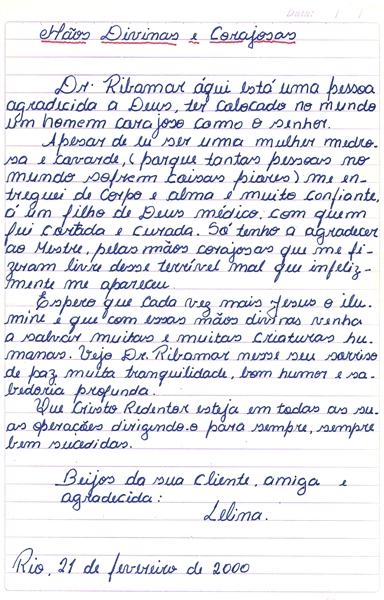 Data: / /
Mãos Divinas e Corajosas
Dr. Ribamar áqui está uma pessoa
agradecida a Deus, ter calocado no mundo
um homem carajoso como o senhor.
Apesar de eu ser uma mulher medro-
sa e cavarde, (parque tantas pessoas no
mundo sofrem caisas piares) me en-
treguei de Corpo e alma e muito confiante,
á um filho de Deus médico, com quem
fui cortada e curada. Só tenho a agradecer
ao Mestre, pelas mãos corajosas que me fi-
zeram livre desse terrível mal que infeliz-
mente me apareceu.
Espero que cada vez mais Jesus o ilu-
mine e que com essas mãos divinas venha
a salvar muitas e muitas criaturas hu-
manas. Vejo Dr. Ribamar nesse seu sorriso
de paz muita tranquilidade, bom humor e sa-
bedoria profunda.
Que Cristo Redentor esteja em todas as su-
as operações dirigindo-o para sempre, sempre
bem sucedidas.
Beijos da sua cliente, amiga e
agradecida:
Lelina.
Rio, 21 de fevereiro de 2000